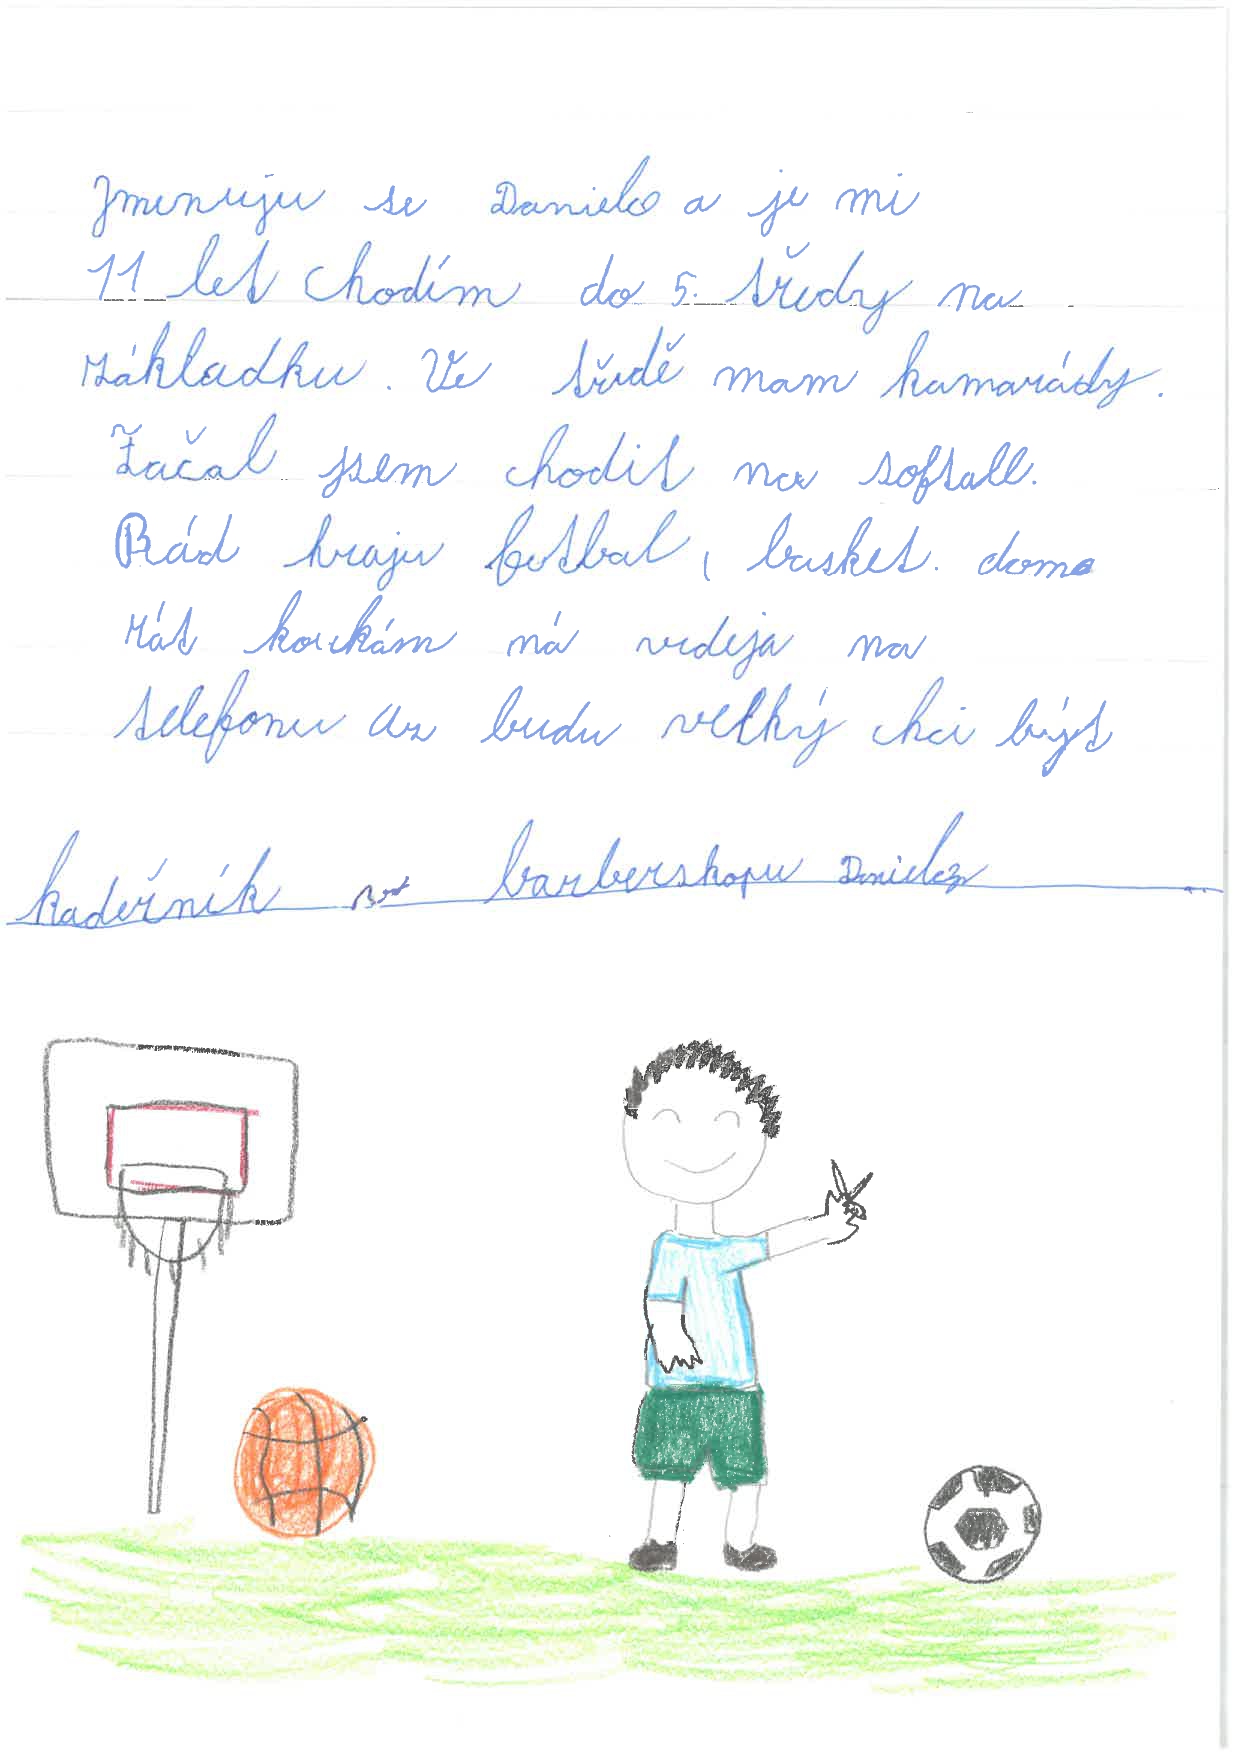 Jmenuju se Danielo a je mi
11 let chodím do 5. tředy na
základku. Ve třudě mam kamarády.
Začal jsem chodit na softall.
Rád hraju fotbal, basket. doma
rát koukám ná videja na
telefonu az budu velký chci být
kadeřník barbershopu